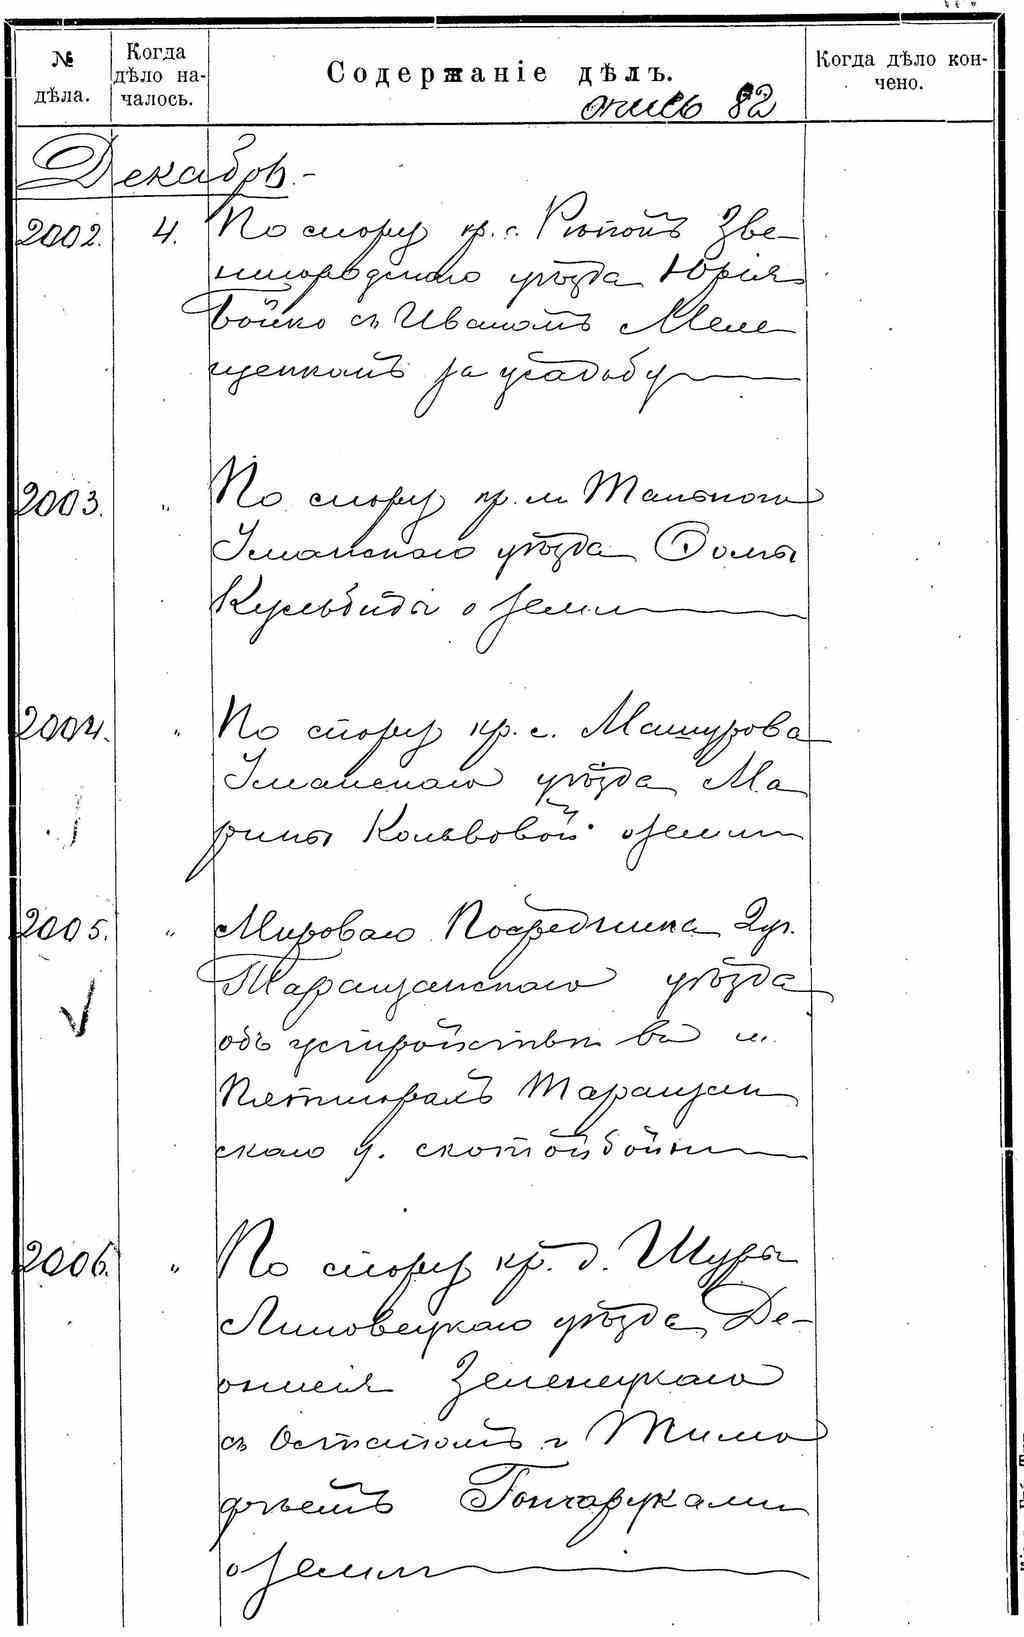 № дѣла.
Когда дѣло на-
чалось.
Содержаніе дѣлъ.
Когда дѣло кон-
чено.
опись 82
Декабрь.-
2002. 4. По спору кр. с. Зве-
нигородскаго уѣзда Юрія
Бойко съ Иваномъ Меле
щенкомъ за усадьбу
2003. " По спору кр. м. Тальнаго
Уманскаго уѣзда Домны
о земли
2004. " По спору кр. с. Машурова
Уманскаго уѣзда Ма
рины Кольвовой о земли
2005. " Мироваго Посредника 2 уч.
Таращанскаго уѣзда
объ устройствѣ въ м.
Пятигорахъ Таращан
скаго у. скотобойни
2006. " По спору кр. д. Шуры
Липовецкаго уѣзда Де-
онисія Зеленецкаго
съ Остапомъ и Тимо
фѣемъ Гончаруками
о земли